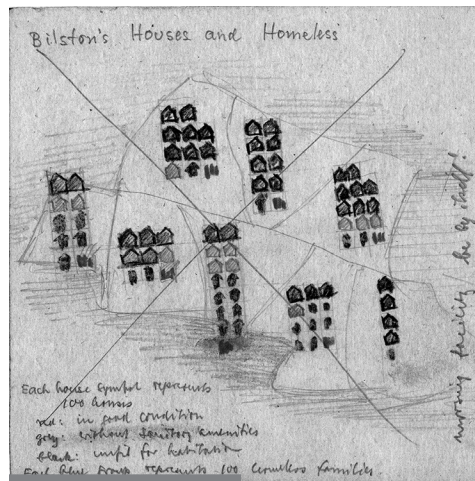 Bilston's Houses and Homeless
Each house symbol represents
100 houses
red: in good condition
grey: without sanitary amenities
black: unfit for habitation
Each blue group represents 100 homeless families.